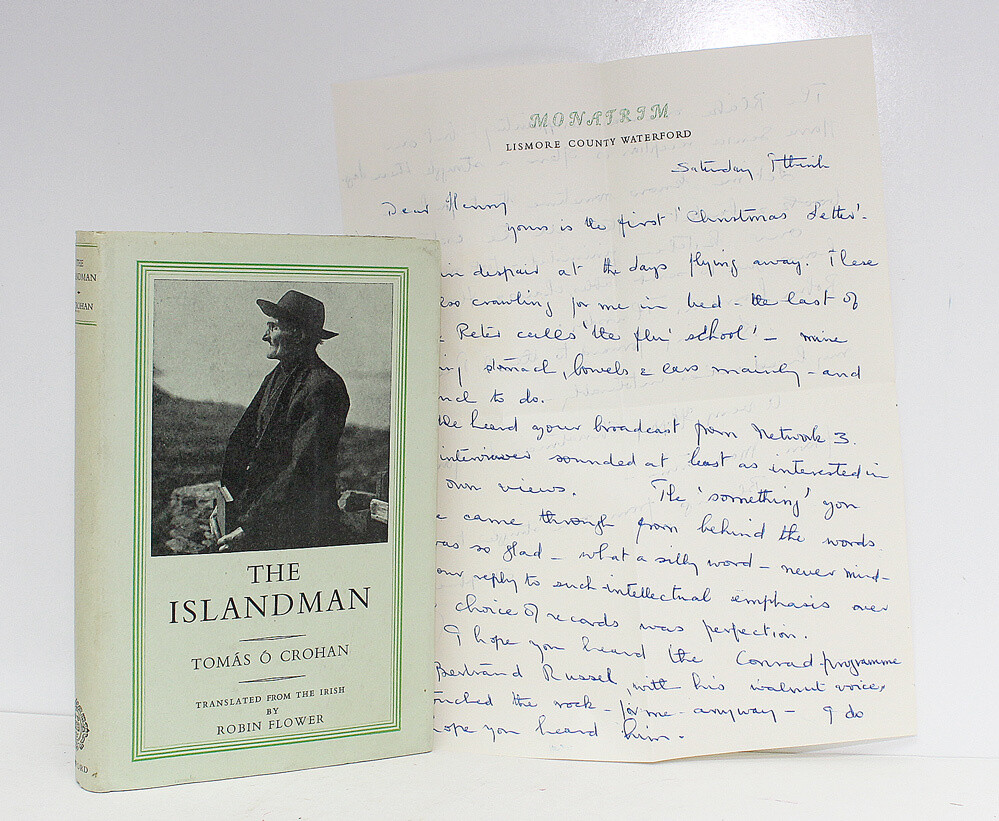 THE
ISLANDMAN
TOMÁS Ó CROHAN
TRANSLATED FROM THE IRISH
BY
ROBIN FLOWER
MONATRIM
LISMORE COUNTY WATERFORD
Saturday I think
Dear Henry
yours is the first 'Christmas Letter'-
in despair at the days flying away. These
so crawling for me in bed - the last of
Peter calls 'the flu school' - mine
stomach, bowels & ears mainly - and
to do.
heard your broadcast from Network 3.
interviewer sounded at least as interested in
own views. The 'something' you
came through from behind the words.
was so glad - what a silly word - never mind -
our reply to such intellectual emphasis over
choice of records was perfection.
I hope you heard the Conrad programme
Bertrand Russel, with his walnut voice,
touched the rock - for me - anyway - I do
hope you heard him.